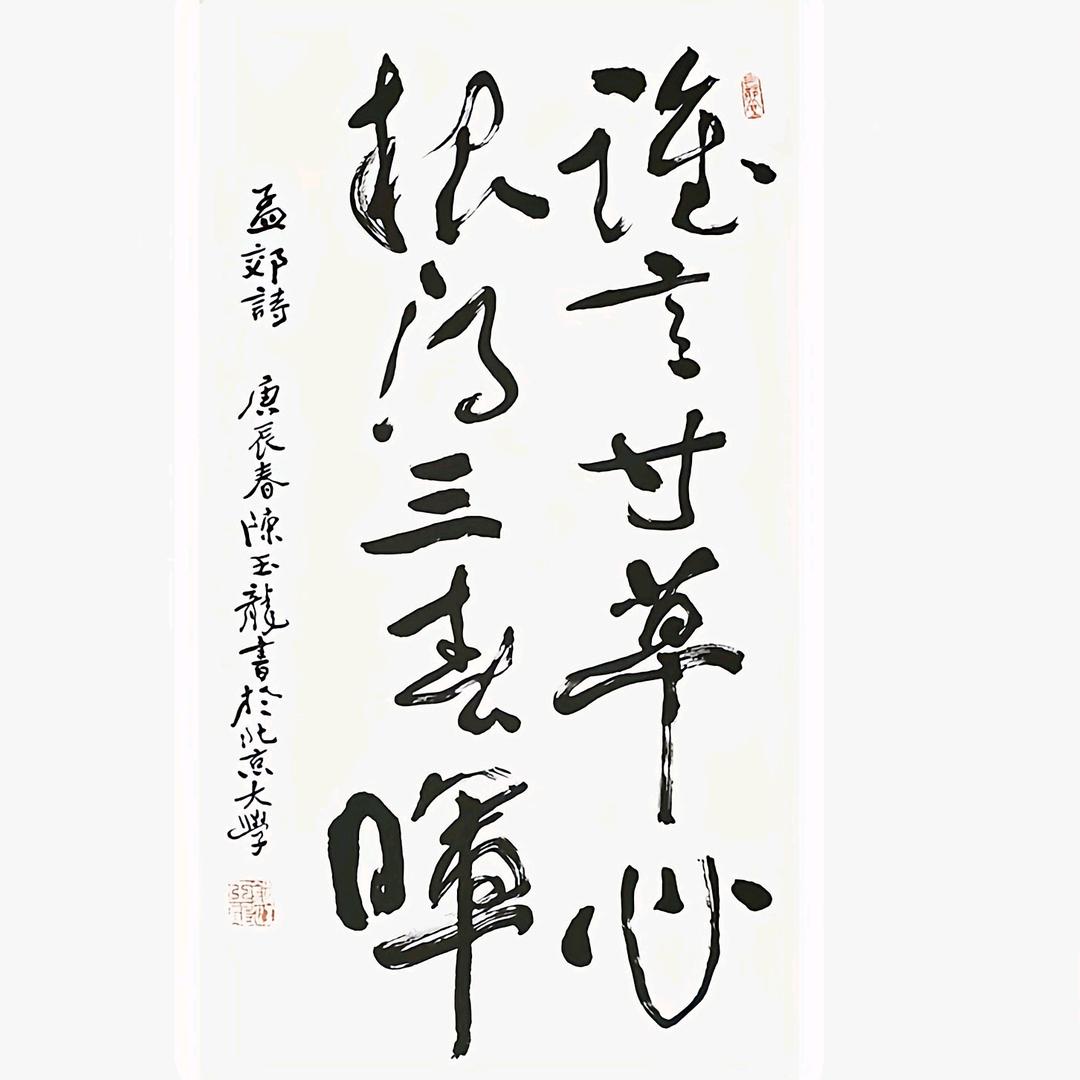 誰言寸草心
報得三春暉
孟郊詩 庚辰春陳玉龍書於北京大學